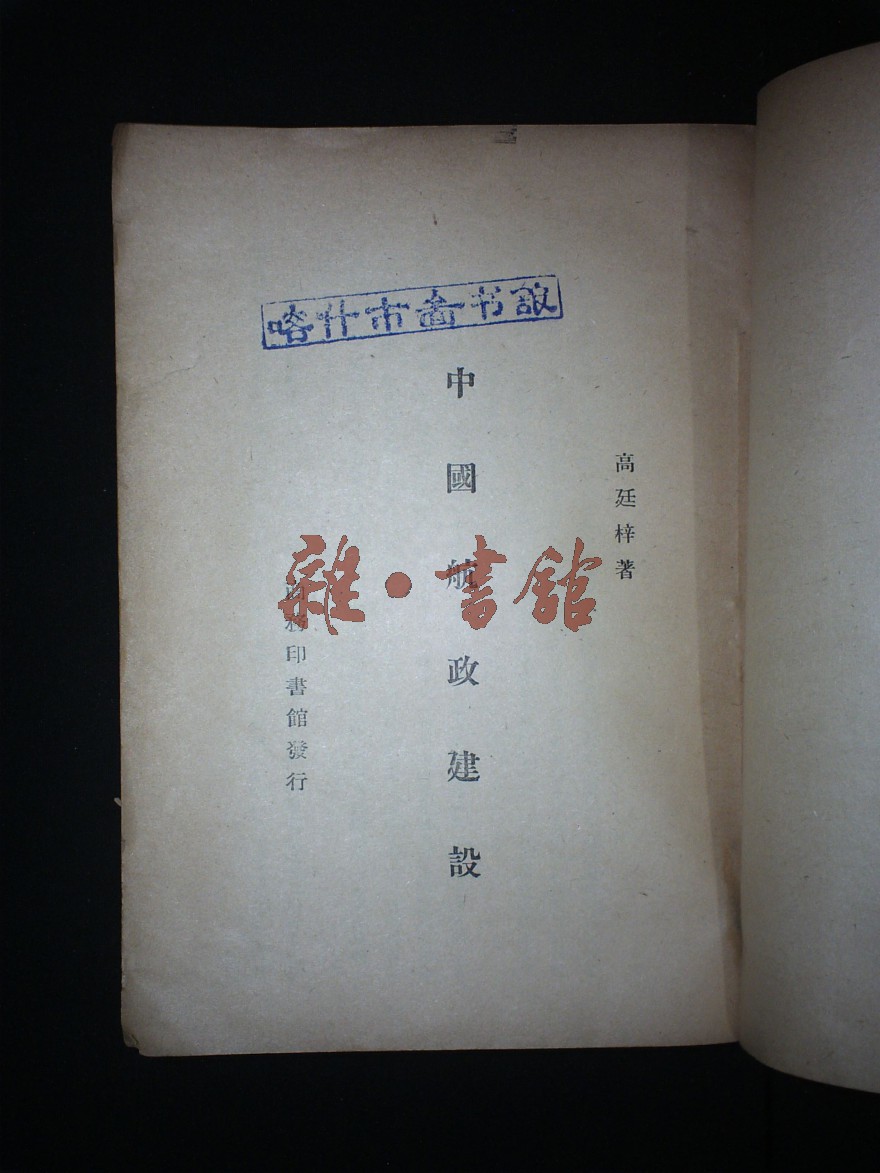 喀什市啚书馆
高廷梓著
中國航政建設
商務印書館發行
雜·書館